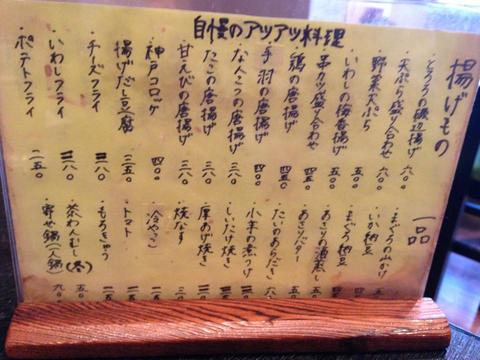 自慢のアツアツ料理
揚げもの
・とろろの磯辺揚げ 六〇〇
・天ぷら盛り合わせ 九〇〇
・野菜天ぷら 六〇〇
・いわしの梅香揚げ 五〇〇
・串カツ盛り合わせ 五五〇
・鶏の唐揚げ 四五〇
・手羽の唐揚げ 四〇〇
・なんこつの唐揚げ 三八〇
・たこの唐揚げ 三八〇
・甘えびの唐揚げ
・神戸コロッケ 四〇〇
・揚げだし豆腐 三五〇
・チーズフライ 三八〇
・いわしフライ 三八〇
・ポテトフライ 二五〇
一品
・まぐろの山かけ
・いか納豆
・まぐろ納豆
・あさりの酒蒸し
・あさりバター
・たいのあらだき
・小羊の煮つけ
・しいたけ焼き
・厚あげ焼き
・焼なす
・冷やっこ
・トマト
・もろきゅう
・茶わんむし(冬)
・寄せ鍋(一人鍋)